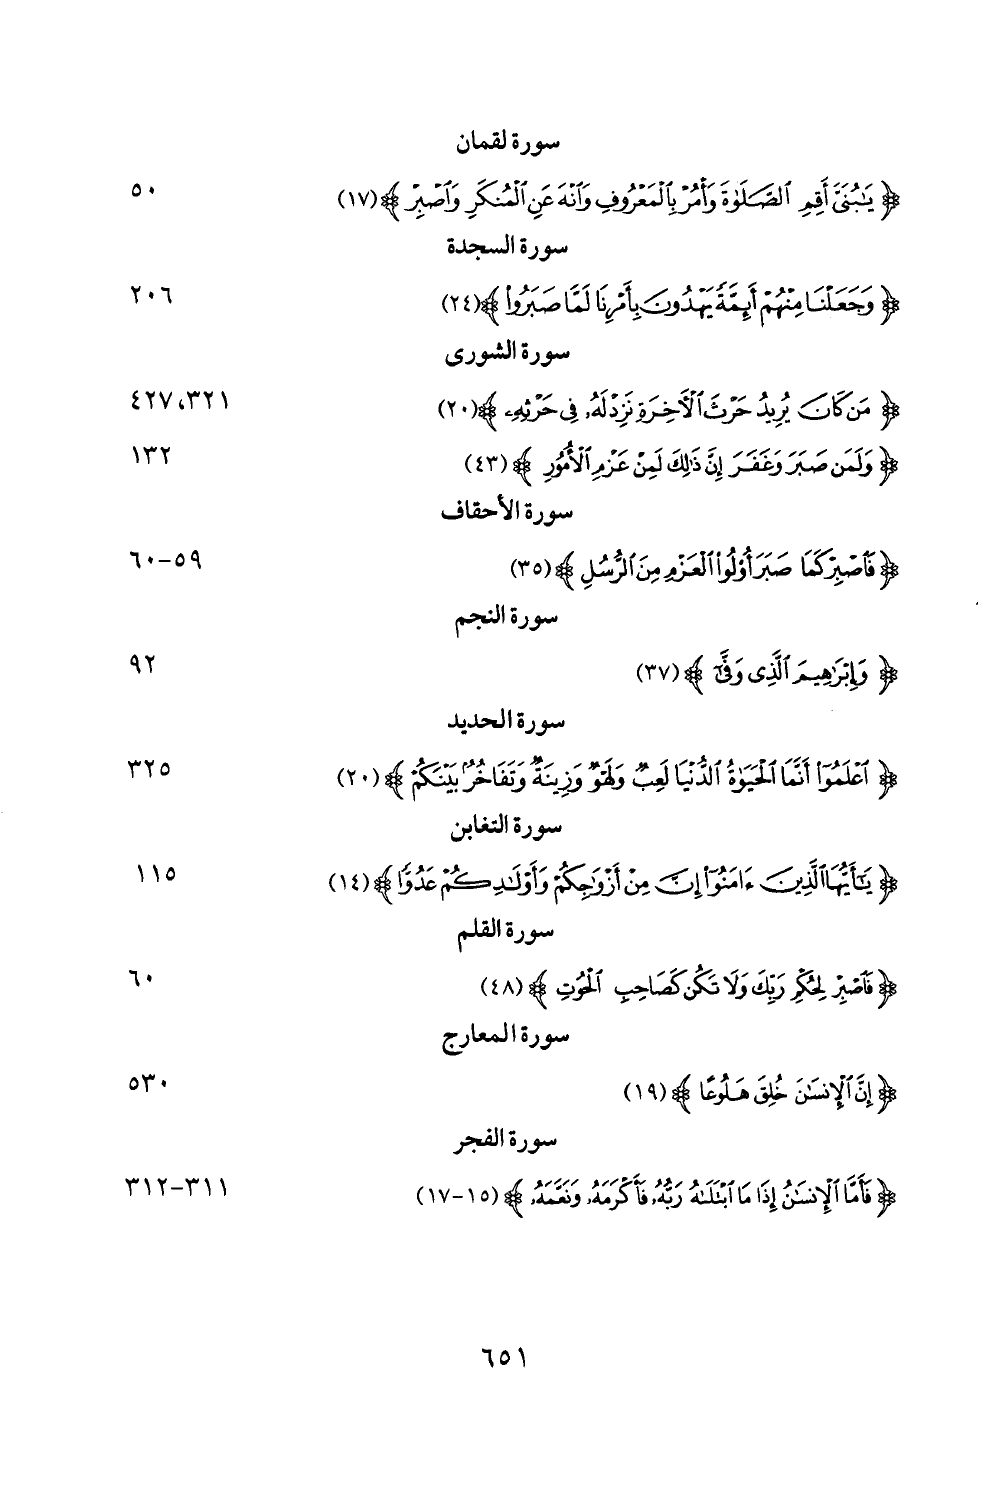 سورة لقمان
﴿ يَٰبُنَىَّ أَقِمِ ٱلصَّلَوٰةَ وَأْمُرْ بِٱلْمَعْرُوفِ وَٱنْهَ عَنِ ٱلْمُنكَرِ وَٱصْبِرْ ﴾ (١٧) ٥٠
سورة السجدة
﴿ وَجَعَلْنَا مِنْهُمْ أَئِمَّةً يَهْدُونَ بِأَمْرِنَا لَمَّا صَبَرُوا۟ ﴾ (٢٤) ٢٠٦
سورة الشورى
﴿ مَن كَانَ يُرِيدُ حَرْثَ ٱلْأَخِرَةِ نَزِدْ لَهُۥ فِى حَرْثِهِۦ ﴾ (٢٠) ٣٢١، ٤٢٧
﴿ وَلَمَن صَبَرَ وَغَفَرَ إِنَّ ذَٰلِكَ لَمِنْ عَزْمِ ٱلْأُمُورِ ﴾ (٤٣) ١٣٢
سورة الأحقاف
﴿ فَٱصْبِرْ كَمَا صَبَرَ أُو۟لُوا۟ ٱلْعَزْمِ مِنَ ٱلرُّسُلِ ﴾ (٣٥) ٥٩-٦٠
سورة النجم
﴿ وَإِبْرَٰهِيمَ ٱلَّذِى وَفَّىٰٓ ﴾ (٣٧) ٩٢
سورة الحديد
﴿ ٱعْلَمُوٓا۟ أَنَّمَا ٱلْحَيَوٰةُ ٱلدُّنْيَا لَعِبٌ وَلَهْوٌ وَزِينَةٌ وَتَفَاخُرٌۢ بَيْنَكُمْ ﴾ (٢٠) ٣٢٥
سورة التغابن
﴿ يَٰٓأَيُّهَا ٱلَّذِينَ ءَامَنُوٓا۟ إِنَّ مِنْ أَزْوَٰجِكُمْ وَأَوْلَٰدِكُمْ عَدُوًّا ﴾ (١٤) ١١٥
سورة القلم
﴿ فَٱصْبِرْ لِحُكْمِ رَبِّكَ وَلَا تَكُن كَصَاحِبِ ٱلْحُوتِ ﴾ (٤٨) ٦٠
سورة المعارج
﴿ إِنَّ ٱلْإِنسَٰنَ خُلِقَ هَلُوعًا ﴾ (١٩) ٥٣٠
سورة الفجر
﴿ فَأَمَّا ٱلْإِنسَٰنُ إِذَا مَا ٱبْتَلَىٰهُ رَبُّهُۥ فَأَكْرَمَهُۥ وَنَعَّمَهُۥ ﴾ (١٥-١٧) ٣١١-٣١٢
٦٥١